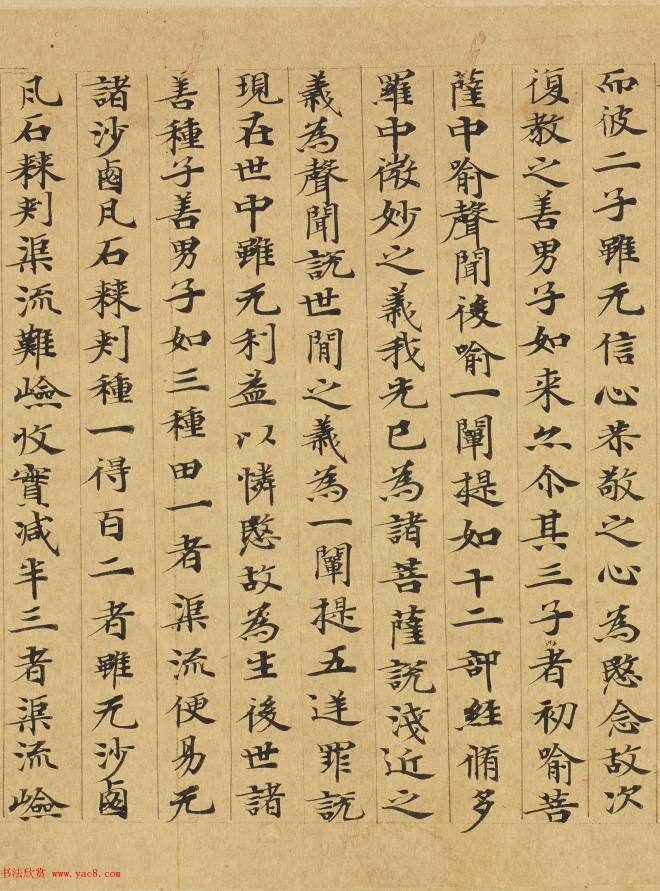 而彼二子雖无信心恭敬之心為愍念故次
復教之善男子如来亦尒其三子者初喻菩
薩中喻聲聞後喻一闡提如十二部經脩多
羅中微妙之義我先已為諸菩薩說淺近之
義為聲聞說世間之義為一闡提五逆罪說
現在世中雖无利益以憐愍故為生後世諸
善種子善男子如三種田一者渠流便易无
諸沙鹵凡石棘刺種一得百二者雖无沙鹵
凡石棘刾渠流難嶮收實減半三者渠流嶮
书法欣赏 www.yac8.com